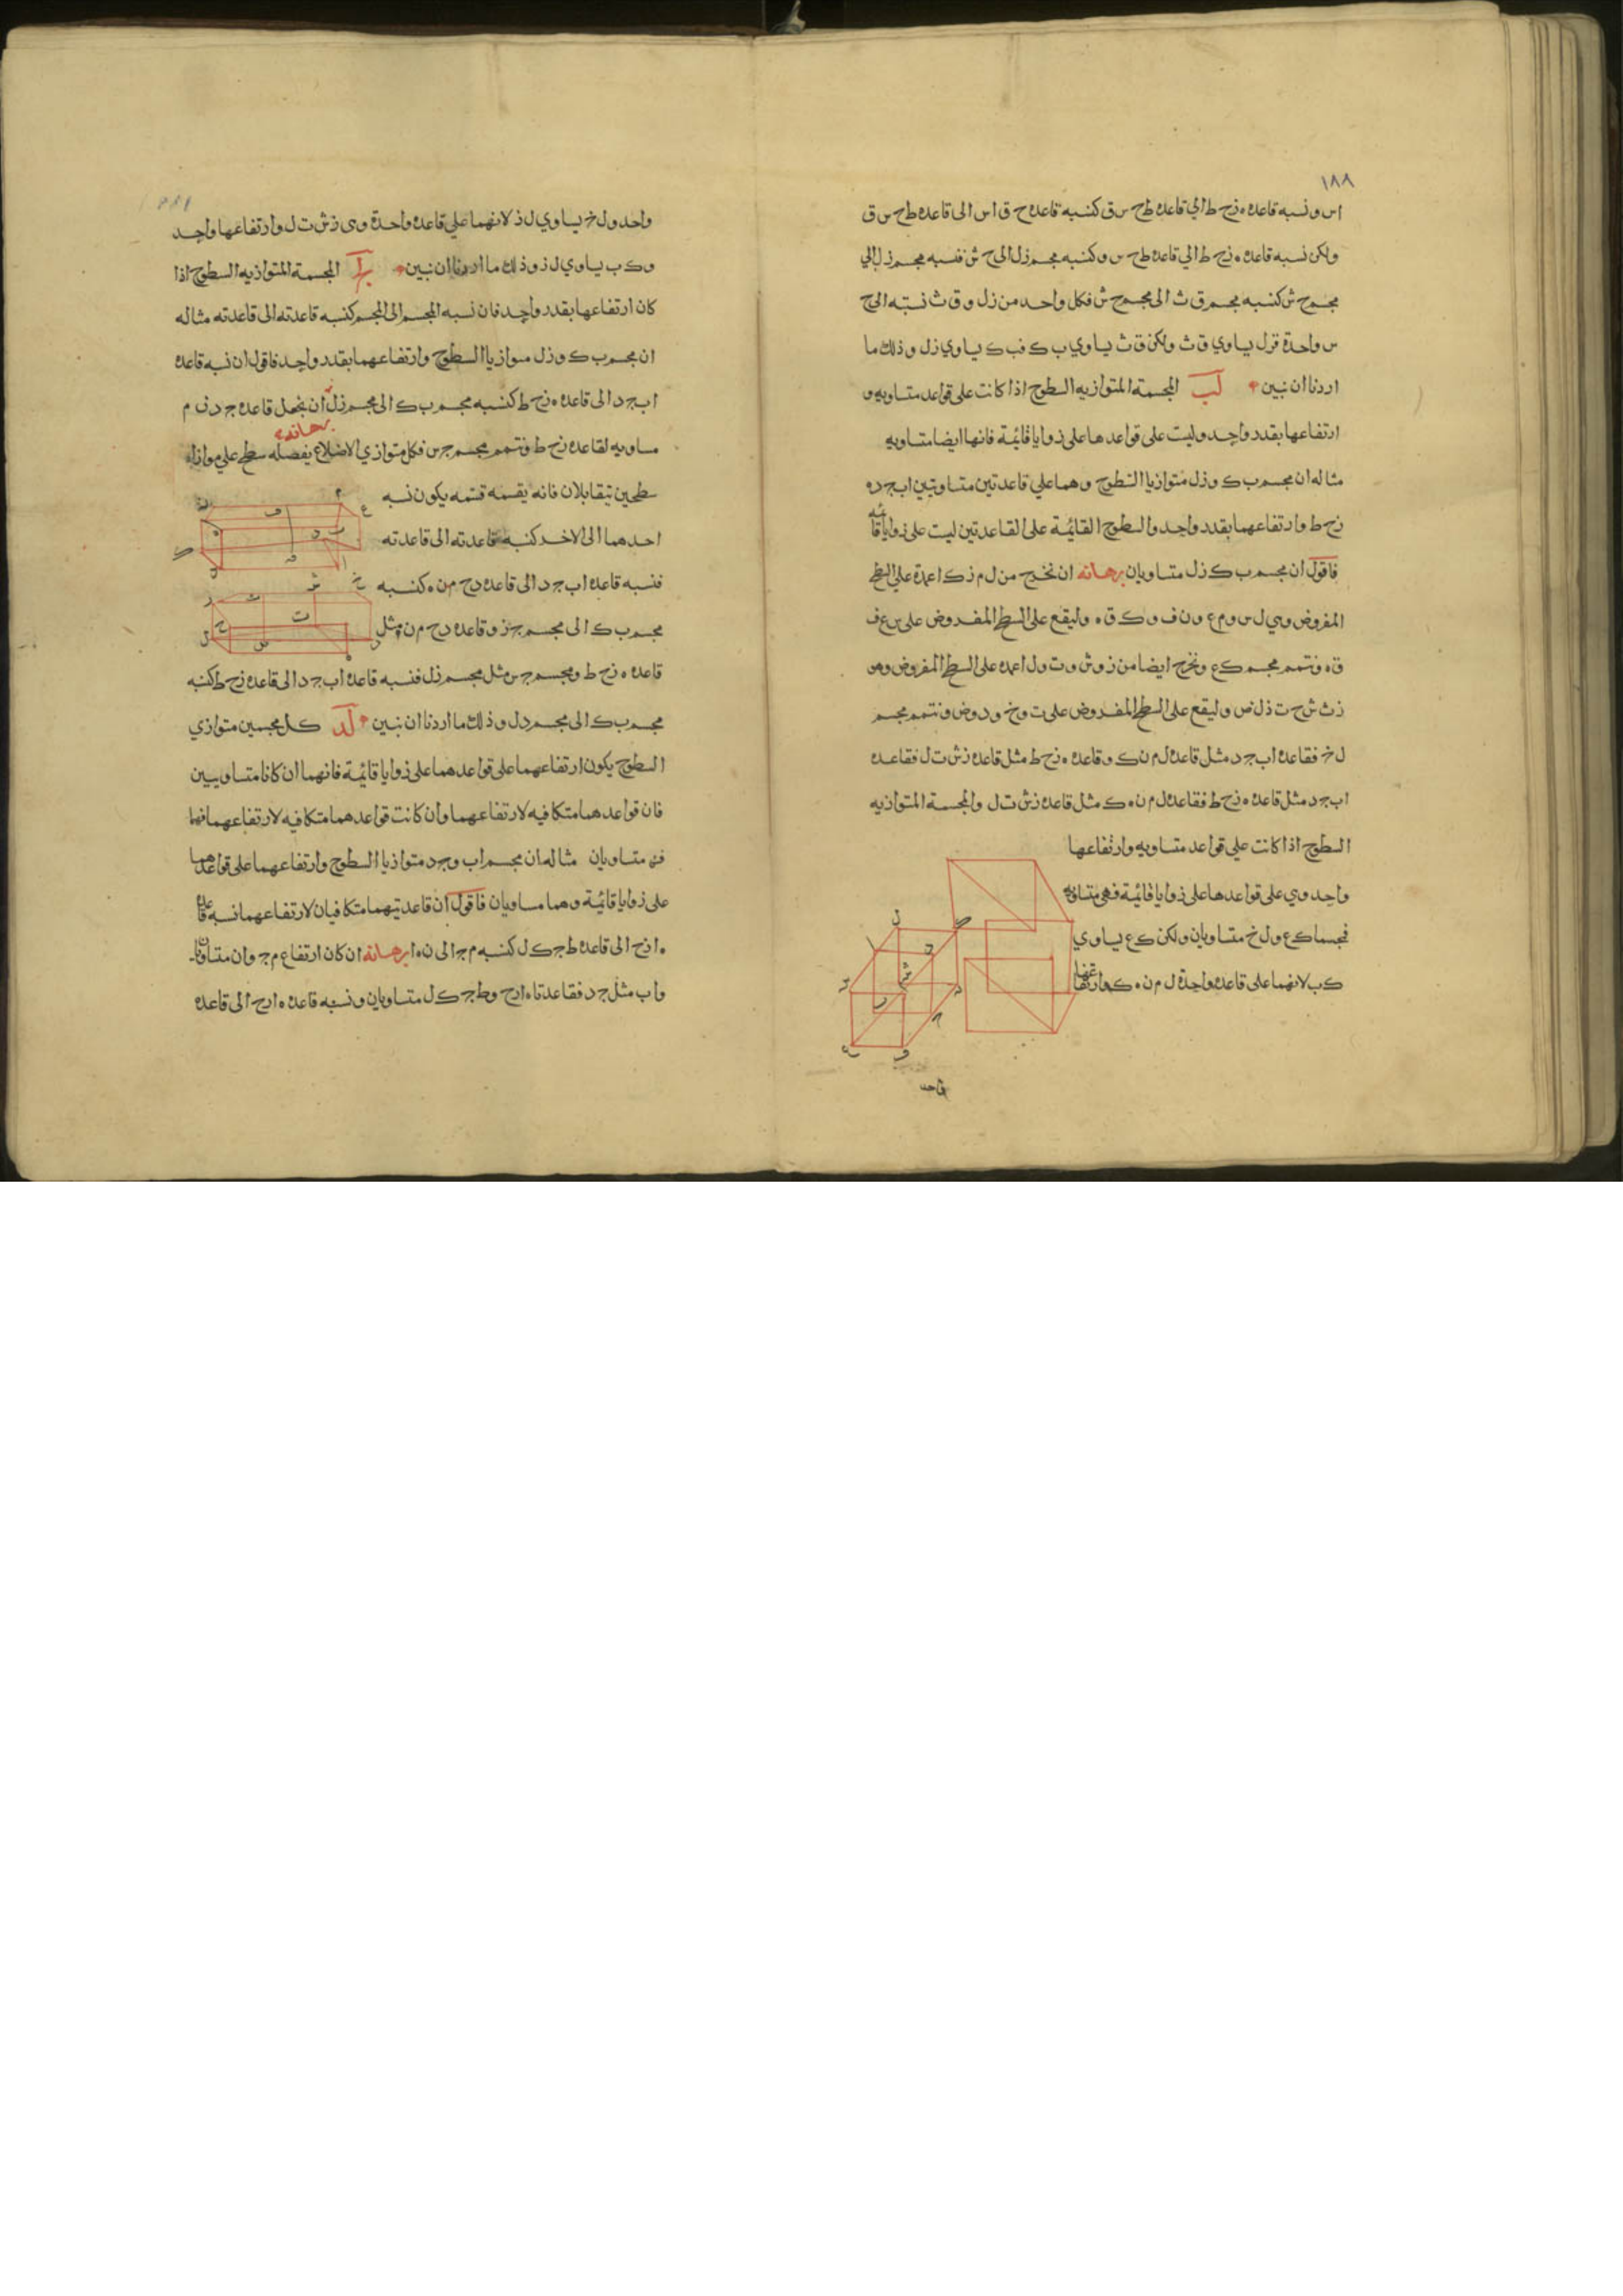 ١٨٨
اس ونسبه قاعده ه زح ط الي قاعده طح س ق كنسبه قاعده ح ق اس الى قاعده طح س ق
ولكن نسبه قاعده ه زح ط الي قاعده طح س وكنسبه مجسم زل الى ح ش فنسبه مجسم زل الي
مجسم ح ش كنسبه مجسم ق ث الى مجسم ح ش فكل واحد من زل و ق ث نسبته الى ح
س واحدة فزل يساوي ق ث ولكن ق ث يساوي ب ك فب ك يساوي زل وذلك ما
اردنا ان نبين لب المجسمة المتوازيه السطوح اذا كانت على قواعد متساويه و
ارتفاعها بقدر واحد وليست على قواعدها على زوايا قائمة فانها ايضا متساويه
مثاله ان مجسم ب ك وزل متوازيا السطوح وهما علي قاعدتين متساويتين اب ج د ه
زح ط وارتفاعهما بقدر واحد والسطوح القائمة على القاعدتين ليست على زوايا قائمه
فاقول ان مجسم ب ك زل متساويان برهانه ان نخرج من ل م ز ك اعمدة علي السطح
المفروض وهي ل س وم ع ون ف وك ق ه وليقع على السطح المفروض على س ع ف
ق ه ونتمم مجسم ك ع ونخرج ايضا من ز وش وت ول اعمده على السطح المفروض وهي
زث ش ح ت ذ ل ض وليقع على السطح المفروض على ث وخ وذ وض ونتمم مجسم
ل خ فقاعده اب ج د مثل قاعده ل م ن ك وقاعده ه زح ط مثل قاعده زش ت ل فقاعده
اب ج د مثل قاعده ه زح ط فقاعده ل م ن ه ك مثل قاعده زش ت ل والمجسمة المتوازيه
السطوح اذا كانت علي قواعد متساويه وارتفاعها
واحد وهي على قواعدها على زوايا قائمة فهي متساويه
فمجسما ك ع ول خ متساويان ولكن ك ع يساوي
ك ب لانهما على قاعده واحدة ل م ن ه ك وارتفاعهما
واحد
واحد ول خ يساوي ل ذ لانهما علي قاعده واحدة وهي زش ت ل وارتفاعها واحد
وك ب يساوي ل ز وذلك ما اردنا ان نبين المجسمة المتوازيه السطوح اذا
كان ارتفاعها بقدر واحد فان نسبه المجسم الى المجسم كنسبه قاعدته الى قاعدته مثاله
ان مجسم ب ك وزل متوازيا السطوح وارتفاعهما بقدر واحد فاقول ان نسبه قاعده
اب ج د الى قاعده ه زح ط كنسبه مجسم ب ك الى مجسم زل ان نجعل قاعده ج د ن م
برهانه
مساويه لقاعده زح ط ونتمم مجسم ج س فكل متوازي الاضلاع يفصله سطح علي موازاه
سطحين يتقابلان فانه يقسمه قسمه يكون نسبه
احدهما الى الاخر كنسبه قاعدته الى قاعدته
فنسبه قاعده اب ج د الى قاعده دح م ن ه كنسبه
مجسم ب ك الى مجسم ج ز وقاعده دح م ن مثل
قاعده ه زح ط ومجسم ج س مثل مجسم زل فنسبه قاعده اب ج د الى قاعده زح ط كنسبه
مجسم ب ك الى مجسم د ل وذلك ما اردنا ان نبين لد كل مجسمين متوازي
السطوح يكون ارتفاعهما على قواعدهما على زوايا قائمة فانهما ان كانا متساويين
فان قواعدهما متكافيه لارتفاعهما وان كانت قواعدهما متكافيه لارتفاعهما فهما
متساويان مثاله ان مجسم اب وجد متوازيا السطوح وارتفاعهما على قواعدهما
على زوايا قائمة وهما مساويان فاقول ان قاعدتيهما متكافيان لارتفاعهما نسبه قاعده
ه ازح الى قاعده ط ج ك ل كنسبه م ج الى ن ه ا برهانه ان كان ارتفاع م ج وان متساويان
واب مثل ج د فقاعدتا ه ازح وط ج ك ل متساويان ونسبه قاعده ه ارح الى قاعده